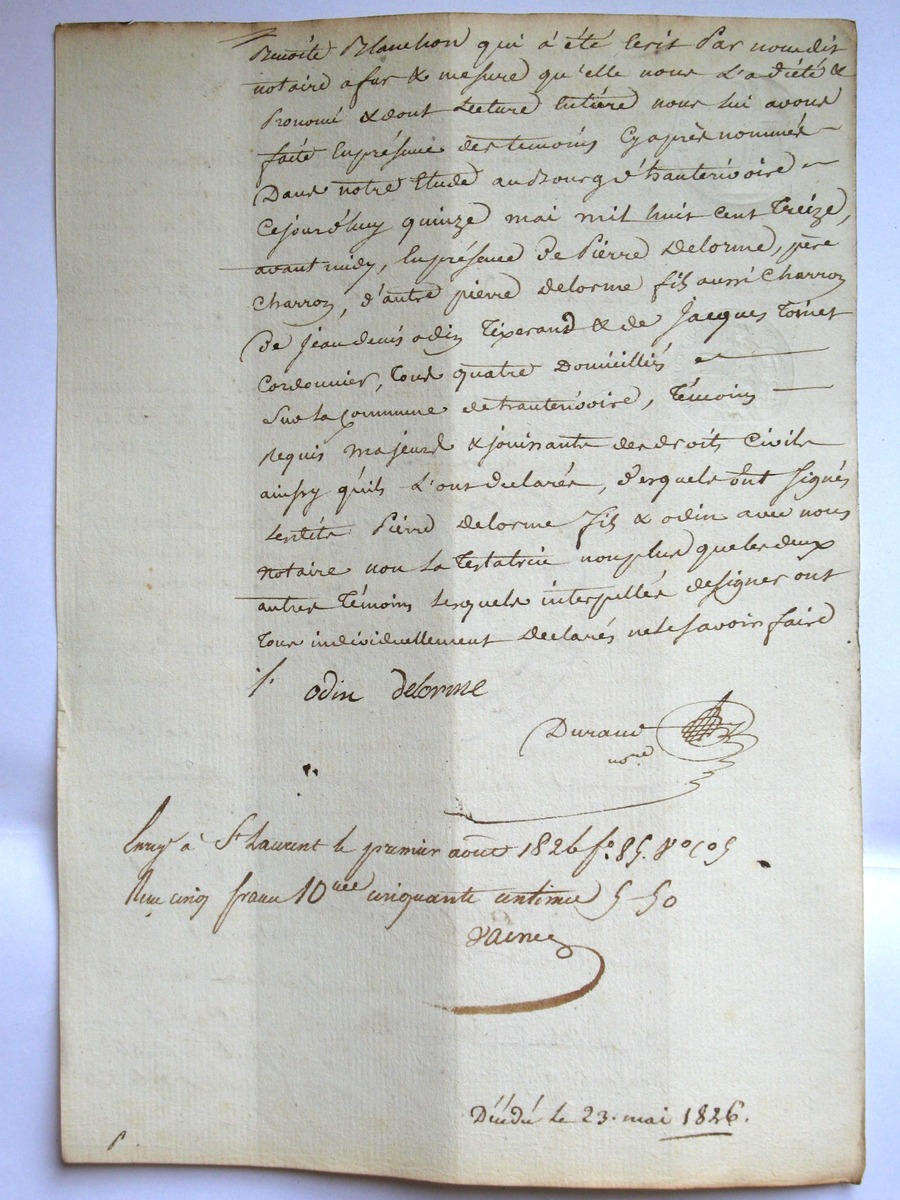 Benoite Blanchon qui à été Ecrit Par nousdit
notaire afur & mesure qu'elle nous L'a diété &
Prononcé & dont Lecture Entière nous lui avons
faite Enprésence des temoins Cyaprès nommés
Dans notre Etude au Bourg d'hauterivoire
Cejourd'huy quinze mai mil huit cent Treize,
avant midy, Enprésence de Pierre Delorme, père
Charron, d'autre pierre Delorme fils aussi Charron
De jean denis odin Tixerand & de Jacques Toinet
Cordonnier, Tous quatre Domiciliés
Sur La Commune de hauterivoire, Témoins
Requis Majeurs & jouissants des droits Civils
ainsy qu'ils L'ont declarés, desquels ont signés
Lesdits Pierre Delorme fils & odin avec nous
Notaire non La Testatrice nonplus que les deux
autres Témoins Lesquels interpellés designer ont
Tous individuellement Declarés ne le savoir faire
odin delorme
Durand
nore
Enreg à St Laurent le premier aout 1826 fo. 85. Vo Co 5
Reçu cinq francs 10me cinquante centimes 5-50
Décédée le 23. mai 1826.